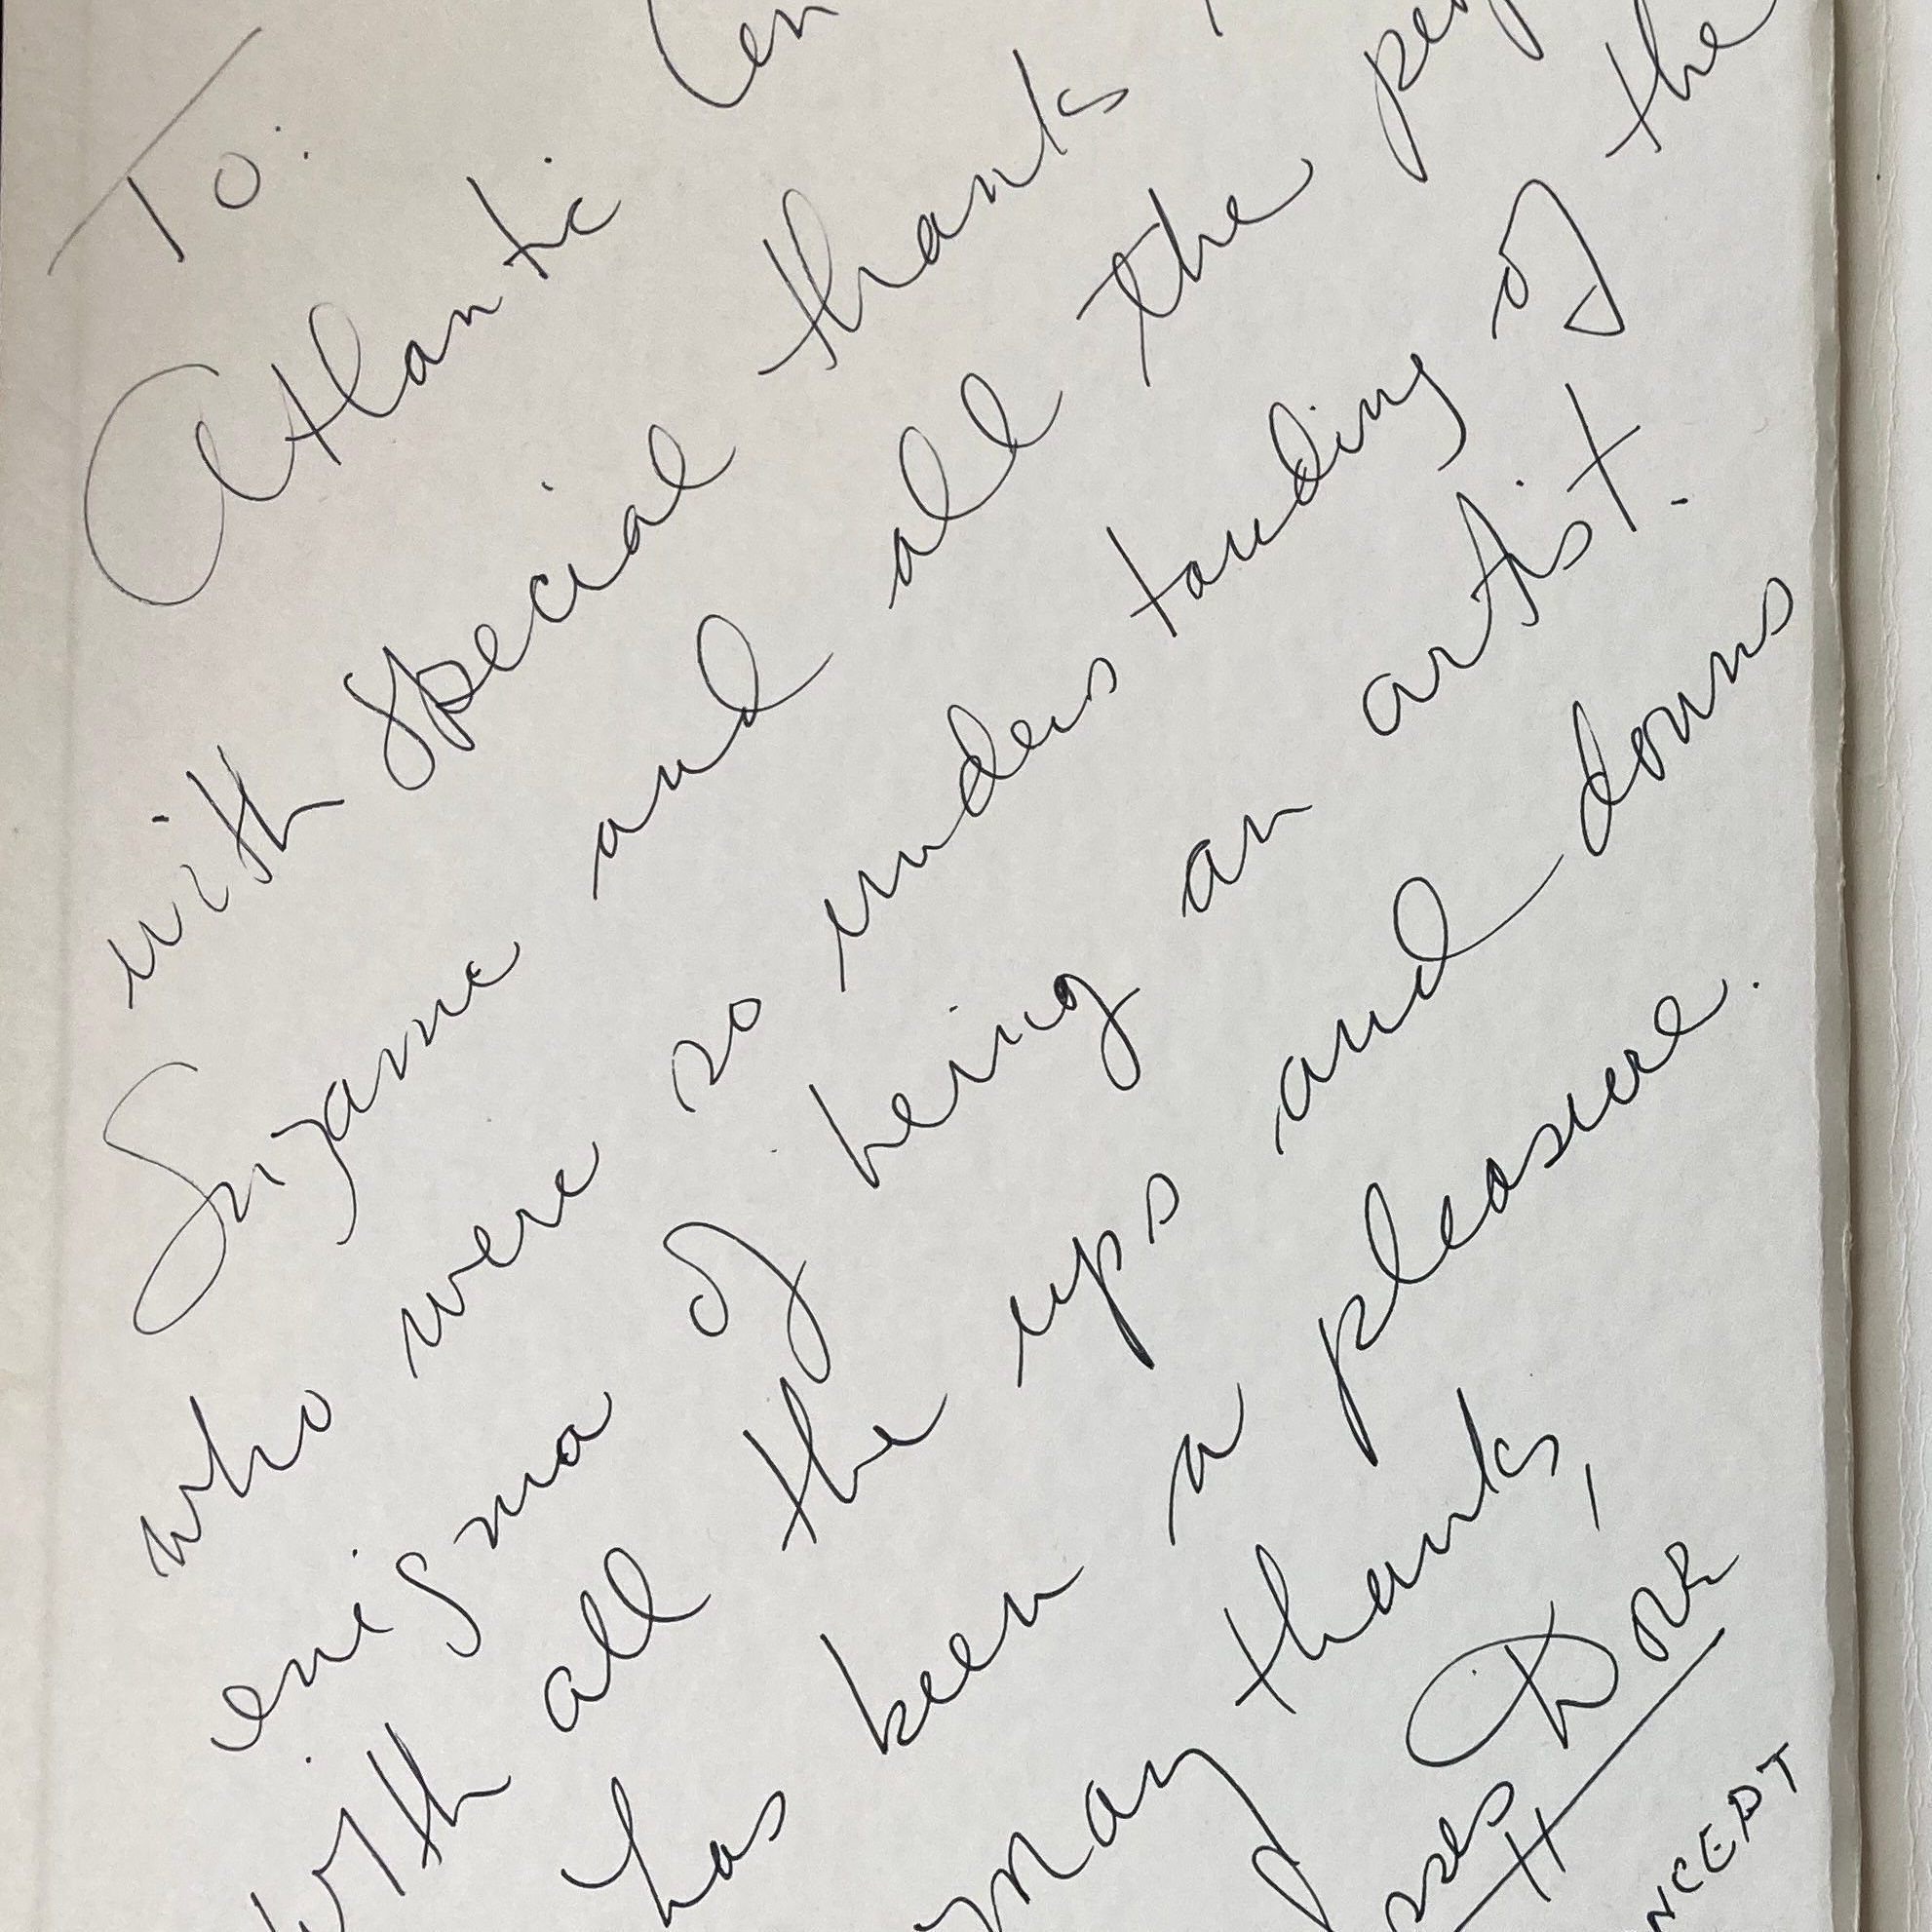 To:
Atlantic Cen
with special thanks
Suzanne and all the
who were so understanding of the
enigma of being an artist.
With all the ups and downs
has been a pleasure.
many thanks,